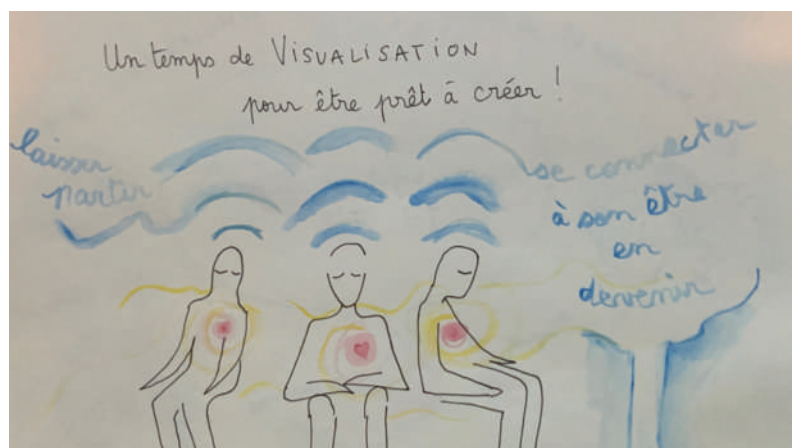 Un temps de VISUALISATION
pour être prêt à créer !
laisser
partir
se connecter
à son être
en
devenir